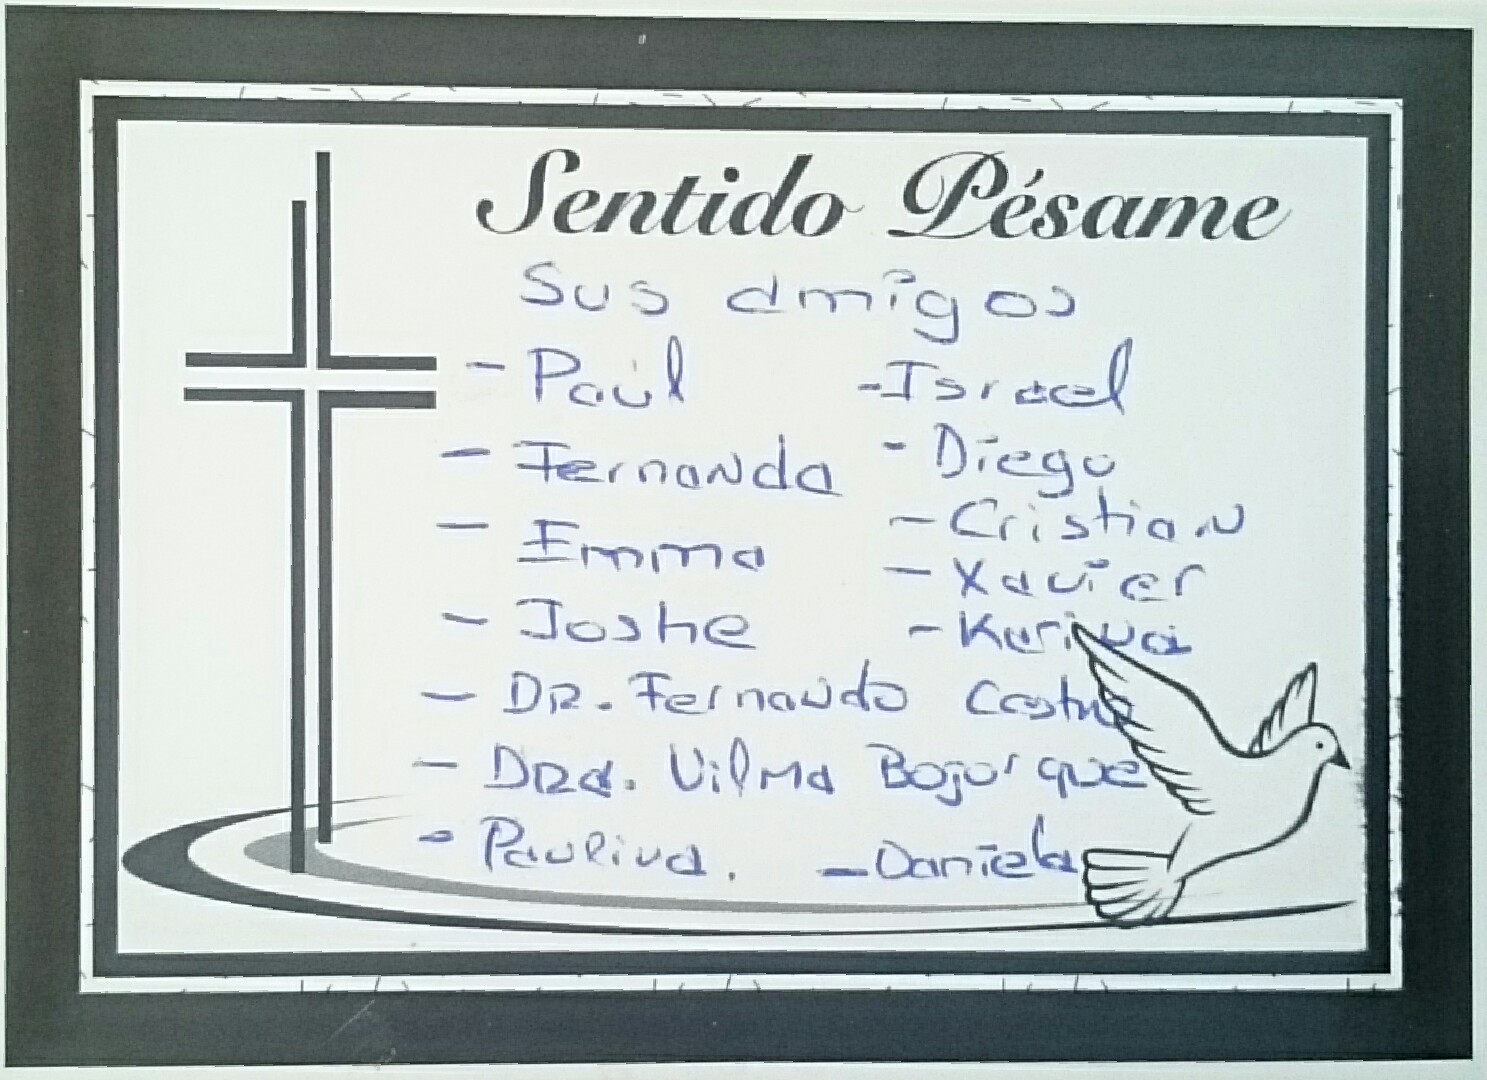 Sentido Pésame
Sus amigos
- Paúl - Israel
- Fernanda - Diego
- Emma - Cristian
- Joshe - Xavier
- Karina
- DR. Fernando
- DRa. Vilma Bojorque
- Paulina. - Daniela